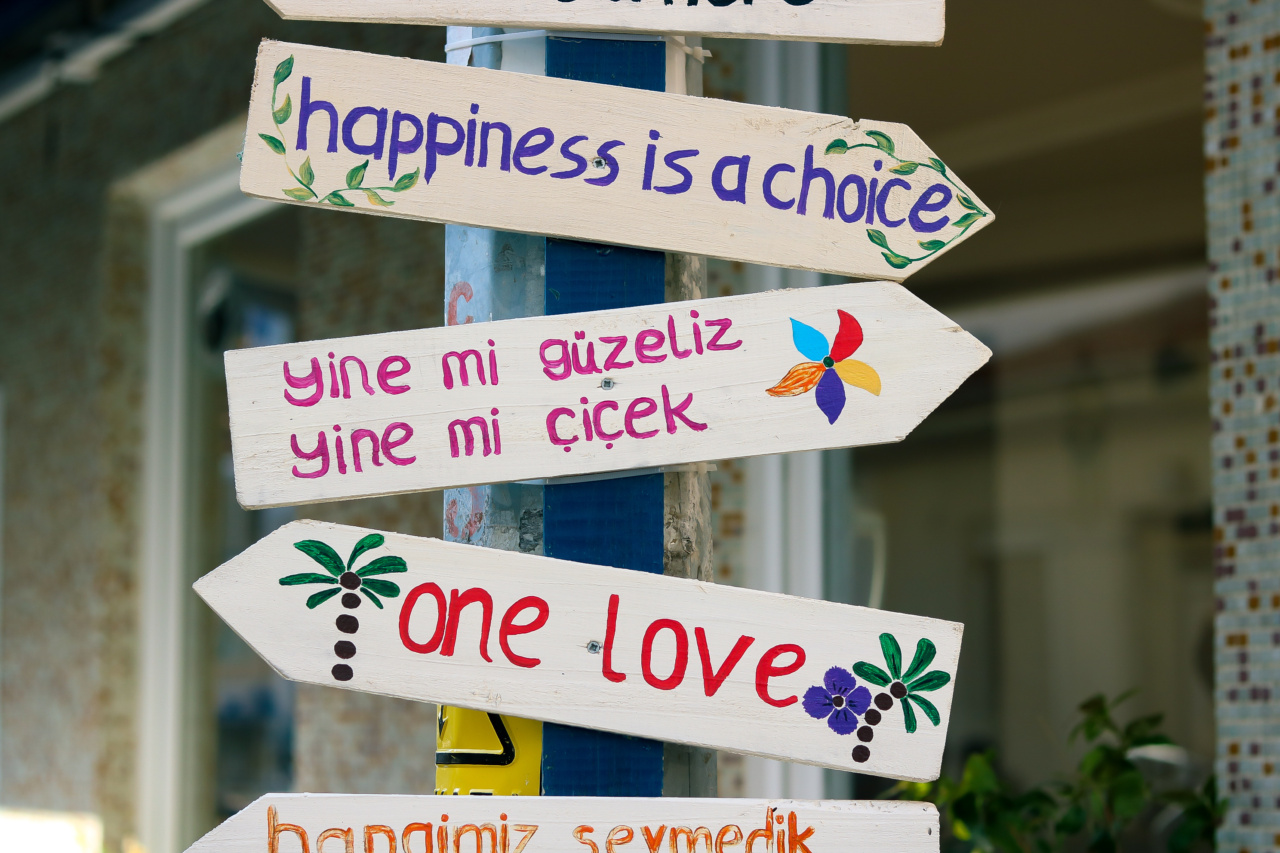 happiness is a choice
yine mi güzeliz
yine mi çiçek
one love
hangimiz sevmedik